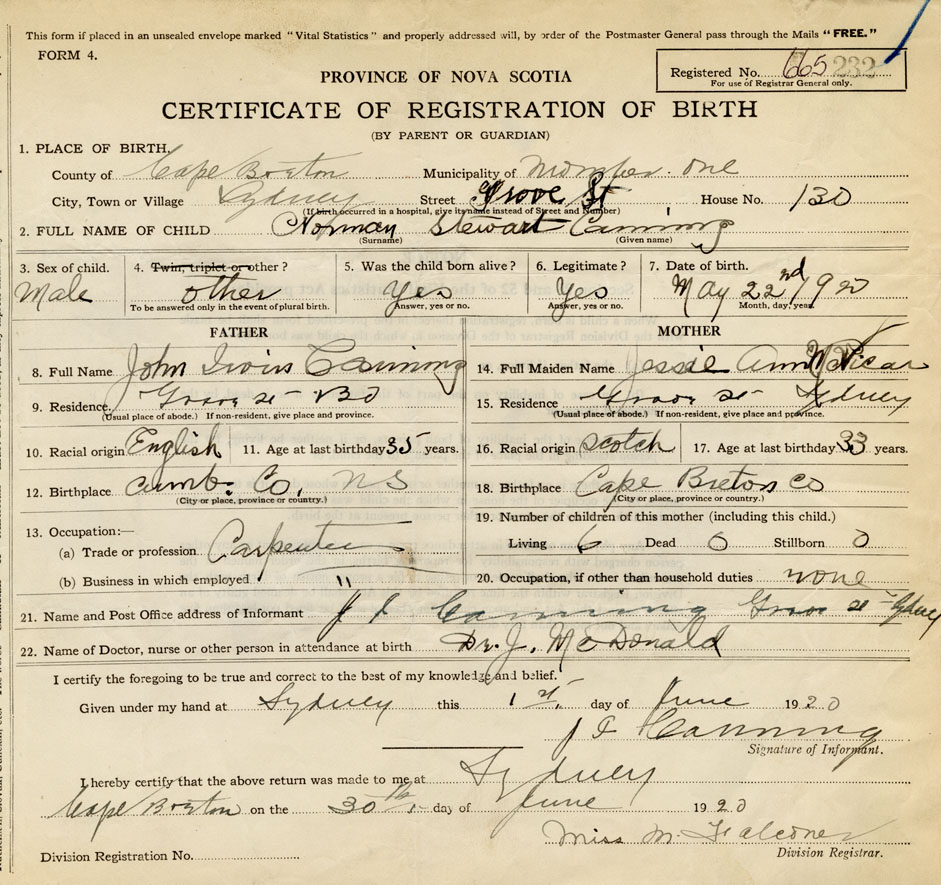 This form if placed in an unsealed envelope marked "Vital Statistics" and properly addressed will, by order of the Postmaster General pass through the Mails "FREE."
FORM 4.
PROVINCE OF NOVA SCOTIA
Registered No. 665 232
For use of Registrar General only.
CERTIFICATE OF REGISTRATION OF BIRTH
(BY PARENT OR GUARDIAN)
1. PLACE OF BIRTH,
County of Cape Breton Municipality of Number. one
City, Town or Village Sydney Street Grove St House No. 130
(If birth occurred in a hospital, give its name instead of Street and Number)
2. FULL NAME OF CHILD Norman Stewart Canning
(Surname) (Given name)
3. Sex of child. 4. Twin, triplet or other? 5. Was the child born alive? 6. Legitimate? 7. Date of birth.
Male other Yes Yes May 22nd 1920
To be answered only in the event of plural birth. Answer, yes or no. Answer, yes or no. Month, day, year.
FATHER MOTHER
8. Full Name John Irvin Canning 14. Full Maiden Name Jessie Ann McVicar
9. Residence Grove St - 130 15. Residence Grove St - Sydney
(Usual place of abode.) If non-resident, give place and province. (Usual place of abode.) If non-resident, give place and province.
10. Racial origin English 11. Age at last birthday 35 years. 16. Racial origin Scotch 17. Age at last birthday 33 years.
12. Birthplace Cumb. Co, NS 18. Birthplace Cape Breton Co
(City or place, province or country.) (City or place, province or country.)
13. Occupation:— 19. Number of children of this mother (including this child.)
(a) Trade or profession Carpenter Living 6 Dead 0 Stillborn 0
(b) Business in which employed " 20. Occupation, if other than household duties none
21. Name and Post Office address of Informant J I Canning Grove St - Sydney
22. Name of Doctor, nurse or other person in attendance at birth Dr. J. McDonald
I certify the foregoing to be true and correct to the best of my knowledge and belief.
Given under my hand at Sydney this 1st, day of June 1920
J I Canning
Signature of Informant.
I hereby certify that the above return was made to me at Sydney
Cape Breton on the 30th, day of June 1920
Miss M. Falconer
Division Registration No. Division Registrar.